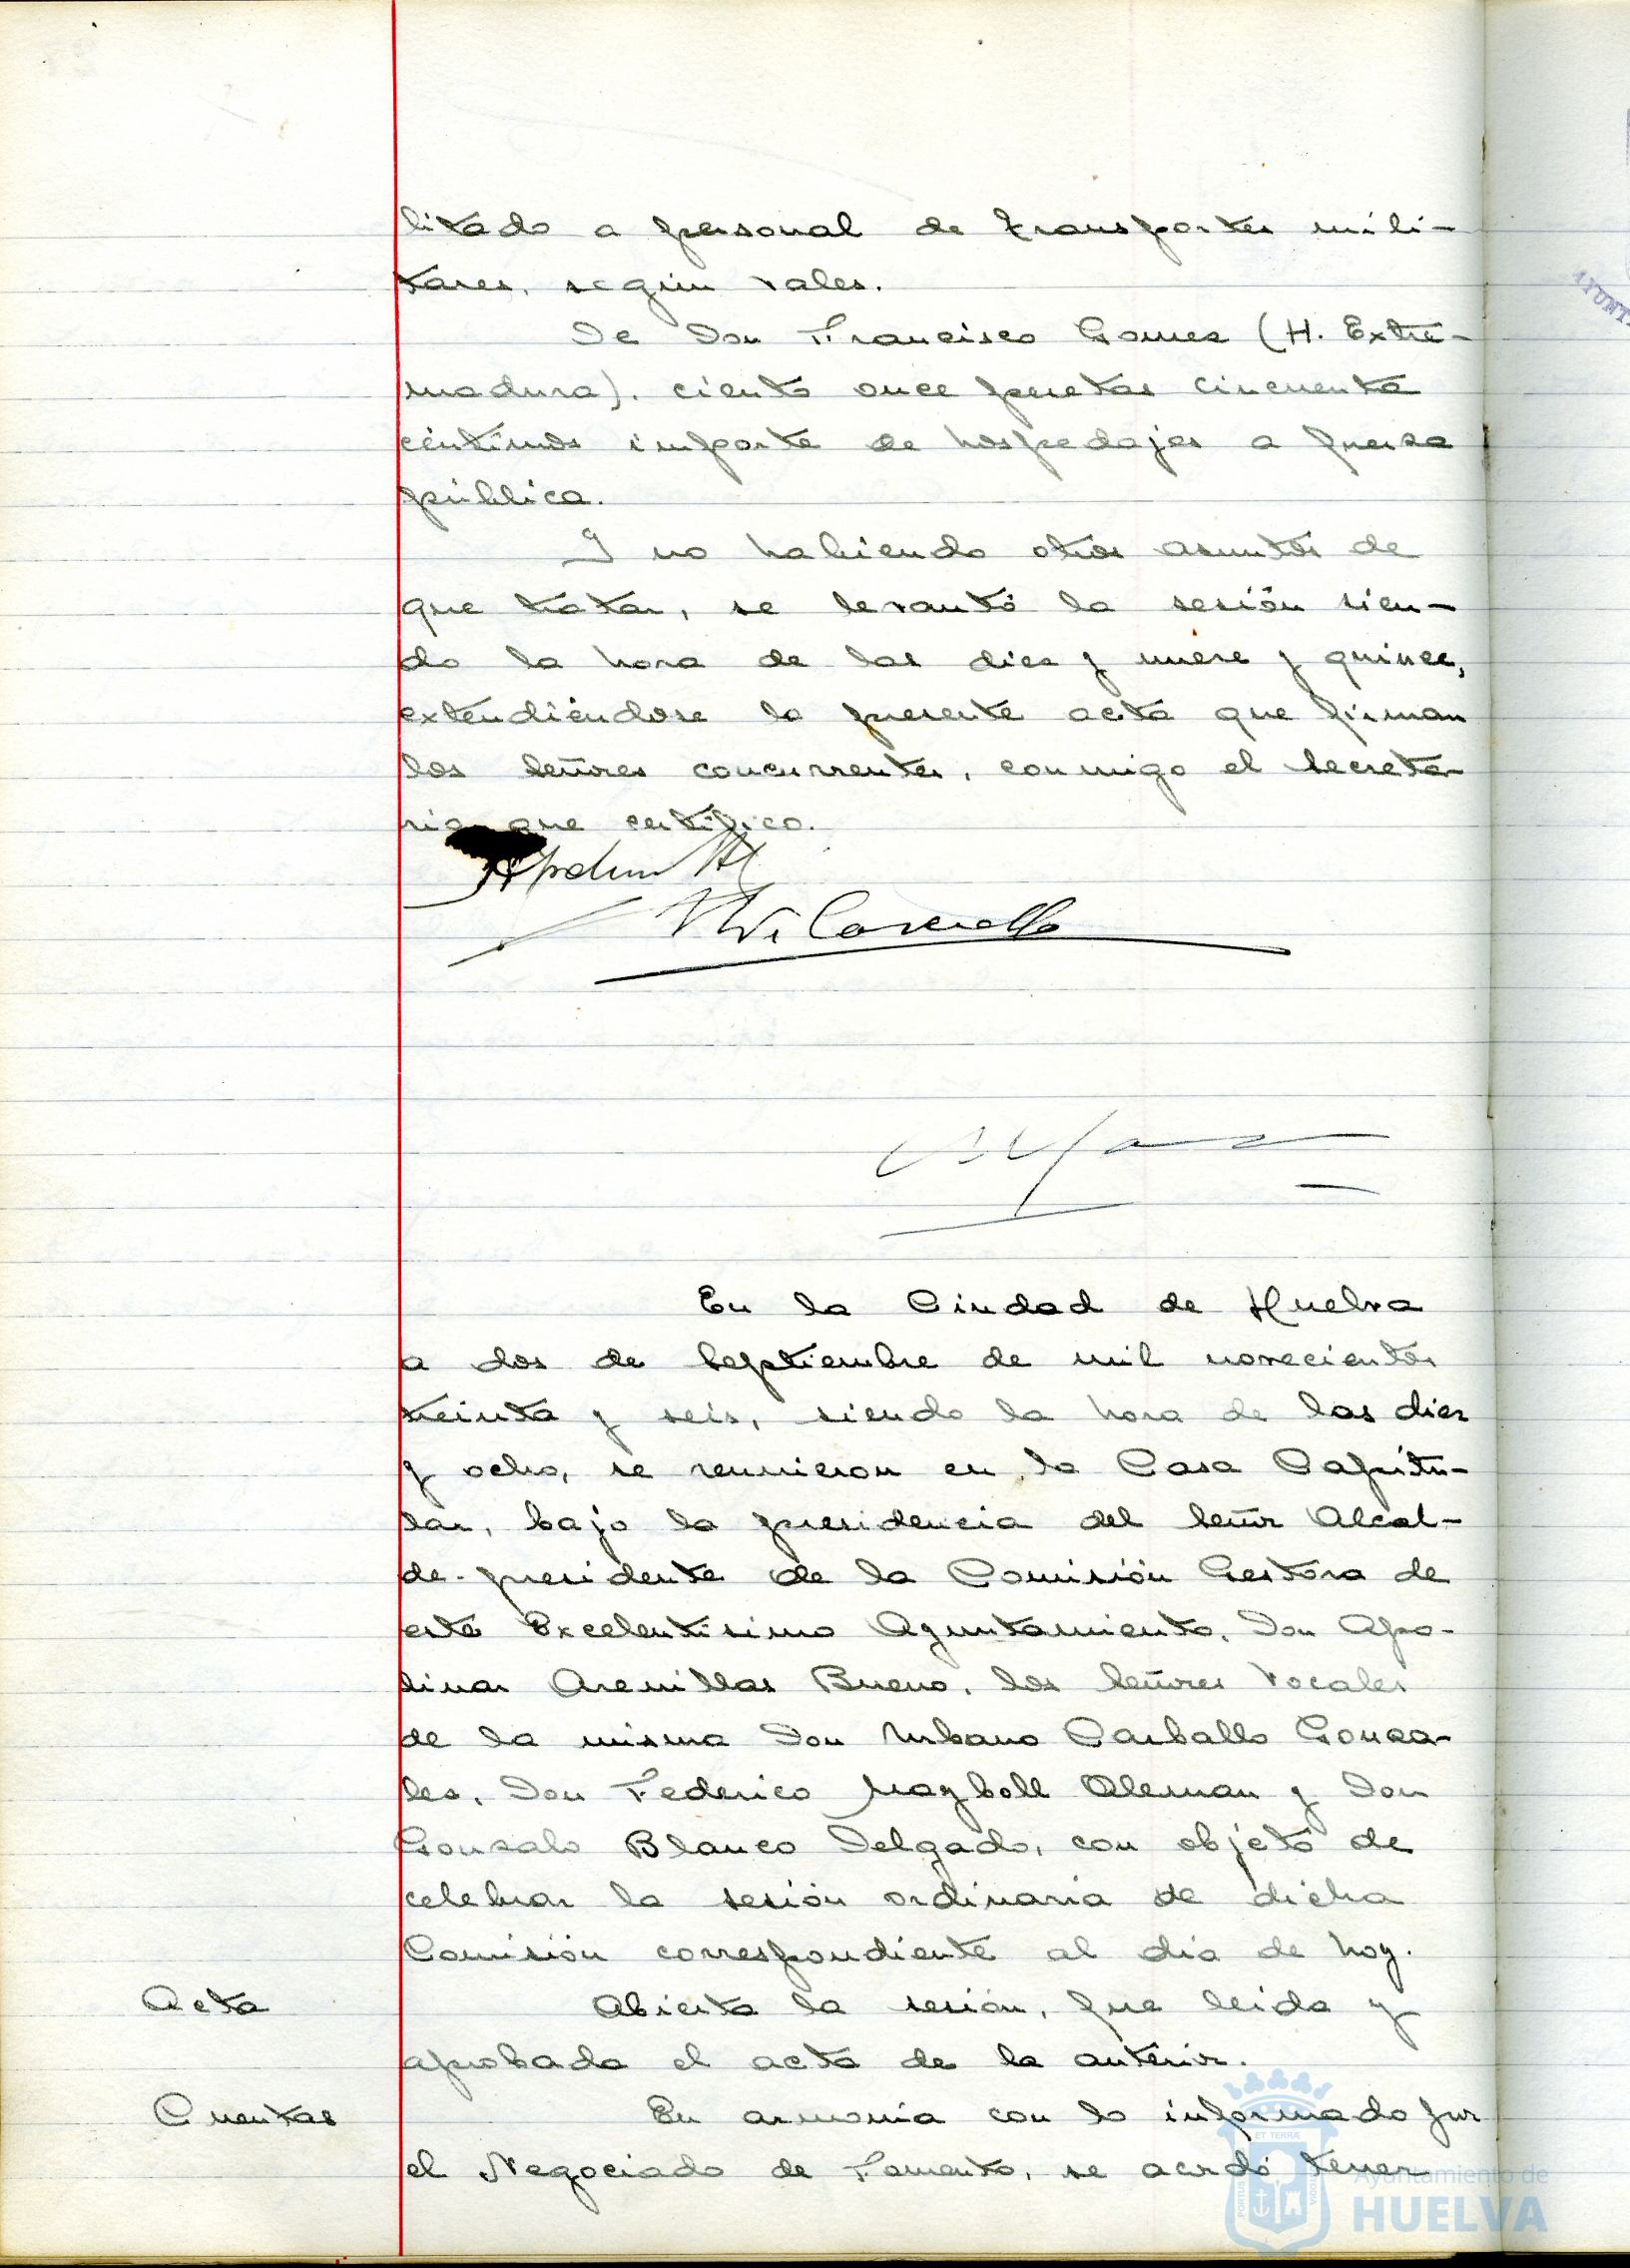 litado a personal de transportes mili-
tares, según vales.
De Don Francisco Gomez (H. Extre-
madura), ciento once pesetas cincuenta
céntimos importe de hospedajes a fuerza
pública.
Y no habiendo otros asuntos de
que tratar, se levantó la sesión sien-
do la hora de las diez y nueve y quince,
extendiéndose la presente acta que firman
los señores concurrentes, conmigo el Secreta-
rio que certifico.
En la Ciudad de Huelva
a dos de Septiembre de mil novecientos
treinta y seis, siendo la hora de las diez
y ocho, se reunieron en la Casa Capitu-
lar, bajo la presidencia del Señor Alcal-
de-presidente de la Comisión Gestora de
este Excelentísimo Ayuntamiento, Don Apo-
linar Arenillas Bueno, los Señores Vocales
de la misma Don Urbano Carballo Gonza-
les, Don Federico Mayboll Aleman y Don
Gonzalo Blanco Delgado, con objeto de
celebrar la sesión ordinaria de dicha
Comisión correspondiente al día de hoy.
Acta
Abierta la sesión, fue leida y
aprobada el acta de la anterior.
Cuentas
En armonia con lo informado por
el Negociado de Fomento, se acordó tener
Ayuntamiento de
HUELVA